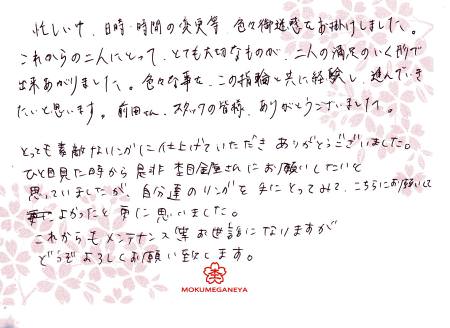 忙しい中、日時・時間の変更等、色々御迷惑をお掛けしました。
これからの二人にとって、とても大切なものが、二人の満足のいく形で
出来あがりました。色々な事を、この指輪と共に経験し、進んでいき
たいと思います。前田さん、スタッフの皆様、ありがとうございました。
とっても素敵なリングに仕上げていただき ありがとうございました。
ひと目見た時から 是非 杢目金屋さんにお願いしたいと
思っていましたが、自分達のリングを手にとってみて、こちらにお願いして
よかったと 更に思いました。
これからもメンテナンス等お世話になりますが
どうぞよろしくお願い致します。
MOKUMEGANEYA